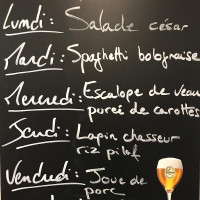 Lundi : Salade césar
Mardi : Spaghetti bolognaise
Mercredi : Escalope de veau
purée de carottes
Jeudi : Lapin chasseur
riz pilaf
Vendredi : Joue de
porc